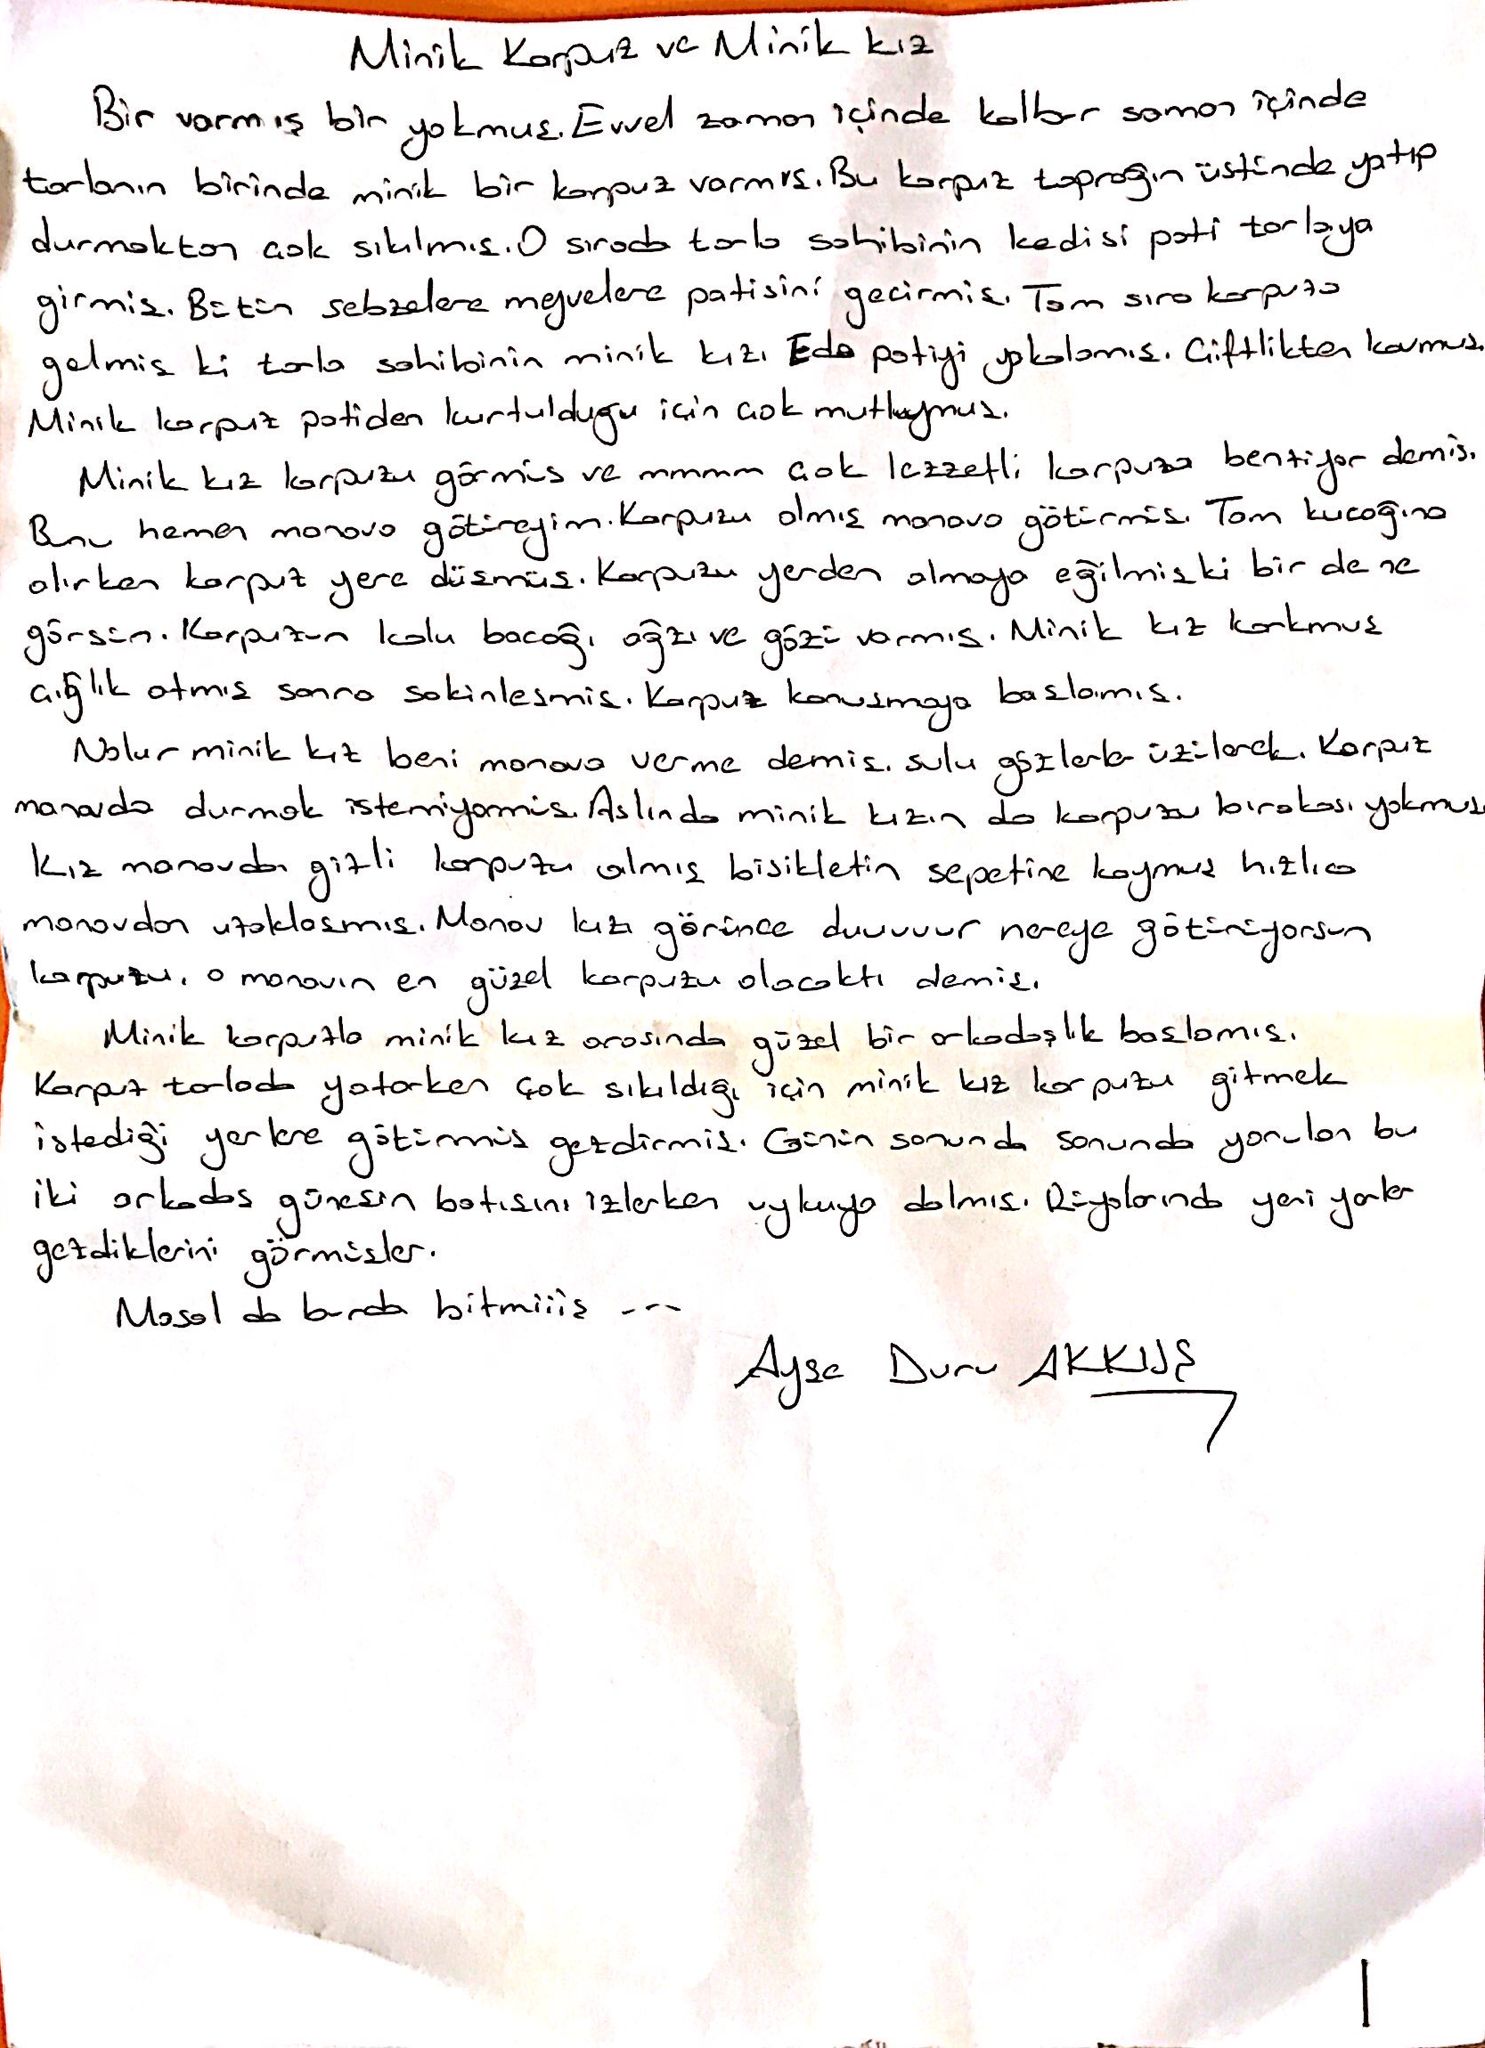 Minik Karpuz ve Minik kız
Bir varmış bir yokmuş. Evvel zaman içinde kalbur saman içinde
tarlanın birinde minik bir karpuz varmış. Bu karpuz toprağın üstünde yatıp
durmaktan çok sıkılmış. O sırada tarla sahibinin kedisi pati tarlaya
girmiş. Bütün sebzelere meyvelere patisini geçirmiş. Tam sıra karpuza
gelmiş ki tarla sahibinin minik kızı Eda patiyi yakalamış. Çiftlikten kovmuş.
Minik karpuz patiden kurtulduğu için çok mutluymuş.
Minik kız karpuzu görmüş ve mmmm çok lezzetli karpuza benziyor demiş.
Bunu hemen manava götüreyim. Karpuzu almış manava götürmüş. Tam kucağına
alırken karpuz yere düşmüş. Karpuzu yerden almaya eğilmişki bir de ne
görsün. Karpuzun kolu bacağı ağzı ve gözü varmış. Minik kız korkmuş
çığlık atmış sonra sakinleşmiş. Karpuz konuşmaya başlamış.
Nolur minik kız beni manava verme demiş. sulu gözlerle üzülerek. Karpuz
manavda durmak istemiyormuş. Aslında minik kızın da karpuzu bırakası yokmuş
Kız manavdan gizli karpuzu almış bisikletin sepetine koymuş hızlıca
manavdan uzaklaşmış. Manav kızı görünce duuuuur nereye götürüyorsun
karpuzu. o manavın en güzel karpuzu olacaktı demiş.
Minik karpuzla minik kız arasında güzel bir arkadaşlık başlamış.
Karpuz tarlada yatarken çok sıkıldığı için minik kız karpuzu gitmek
istediği yerlere götürmüş gezdirmiş. Günün sonunda sonunda yorulan bu
iki arkadaş güneşin batışını izlerken uykuya dalmış. Rüyalarında yeni yerler
gezdiklerini görmüşler.
Masal da burda bitmiiiş ---
Ayşe Duru AKKUŞ